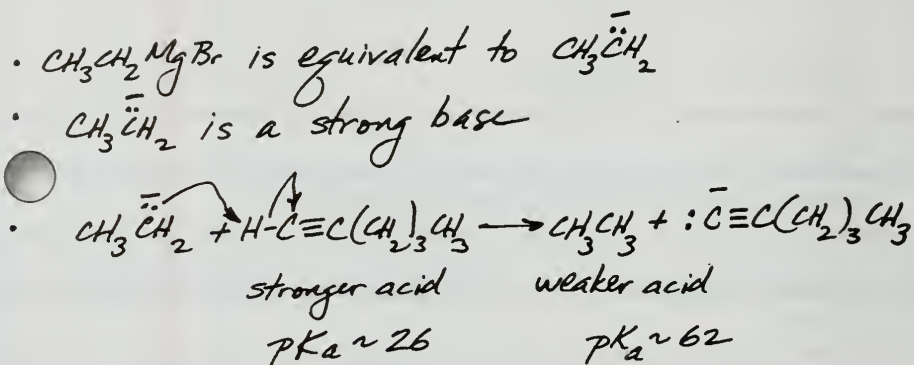 • CH₃CH₂MgBr is equivalent to CH₃C̈̄H₂
• CH₃C̈̄H₂ is a strong base
• CH₃C̈̄H₂ + H-C≡C(CH₂)₃CH₃ ⟶ CH₃CH₃ + :C̄≡C(CH₂)₃CH₃
stronger acid weaker acid
pKa ~ 26 pKa ~ 62